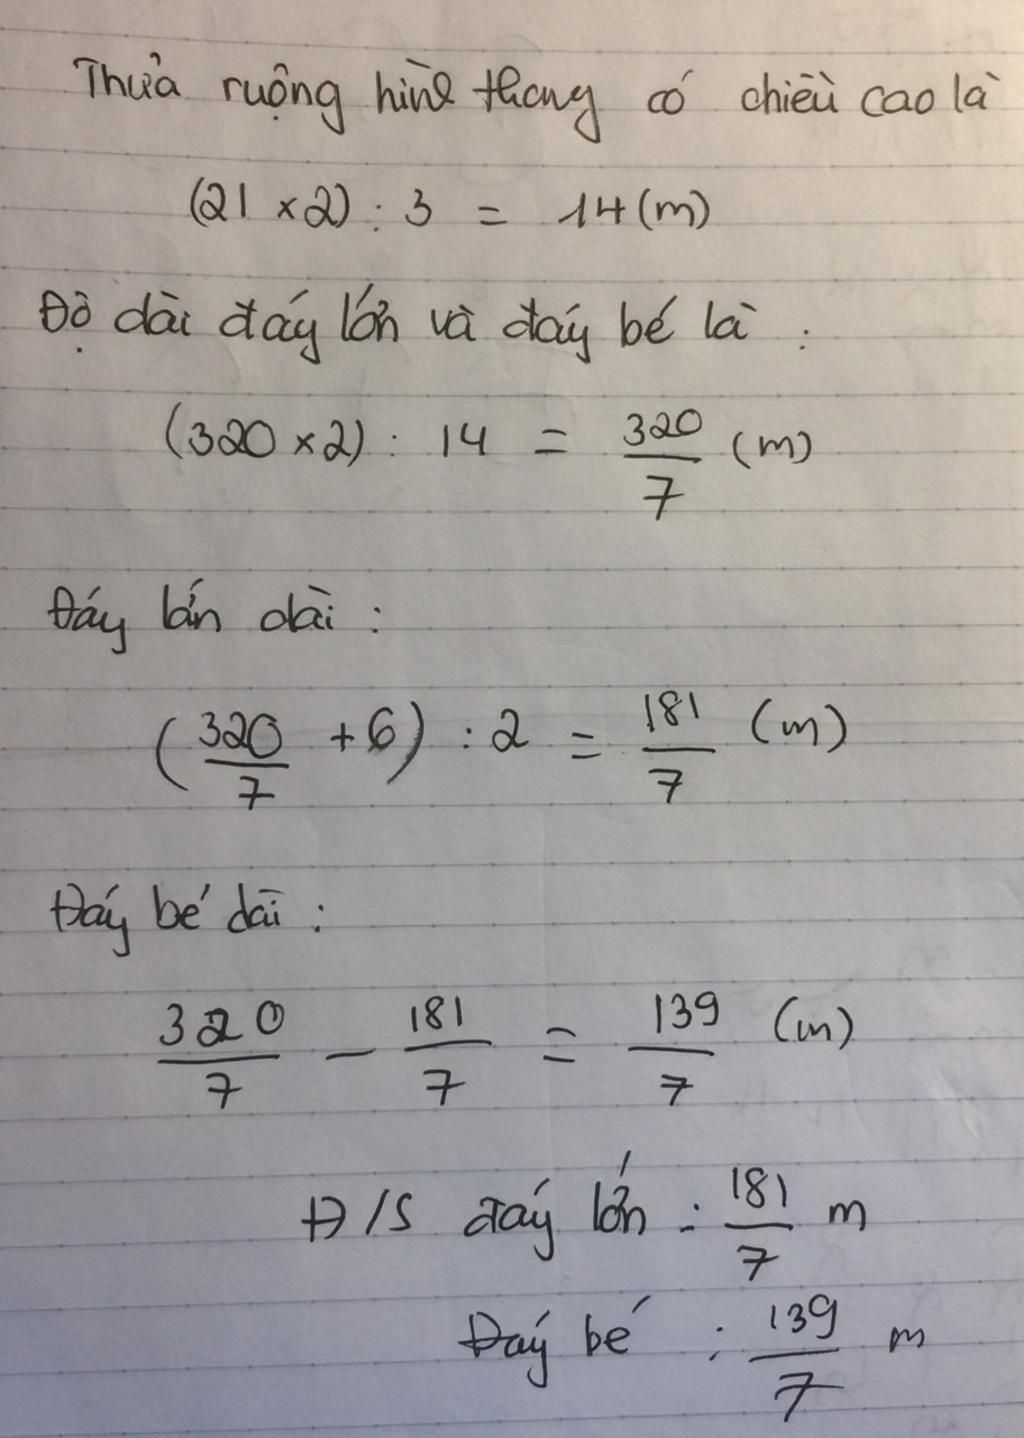 Thửa ruộng hình thang có chiều cao là
(21 × 2) : 3 = 14 (m)
Độ dài đáy lớn và đáy bé là :
(320 × 2) : 14 = 320/7 (m)
Đáy lớn dài :
(320/7 + 6) : 2 = 181/7 (m)
Đáy bé dài :
320/7 − 181/7 = 139/7 (m)
Đ/S đáy lớn : 181/7 m
Đáy bé : 139/7 m